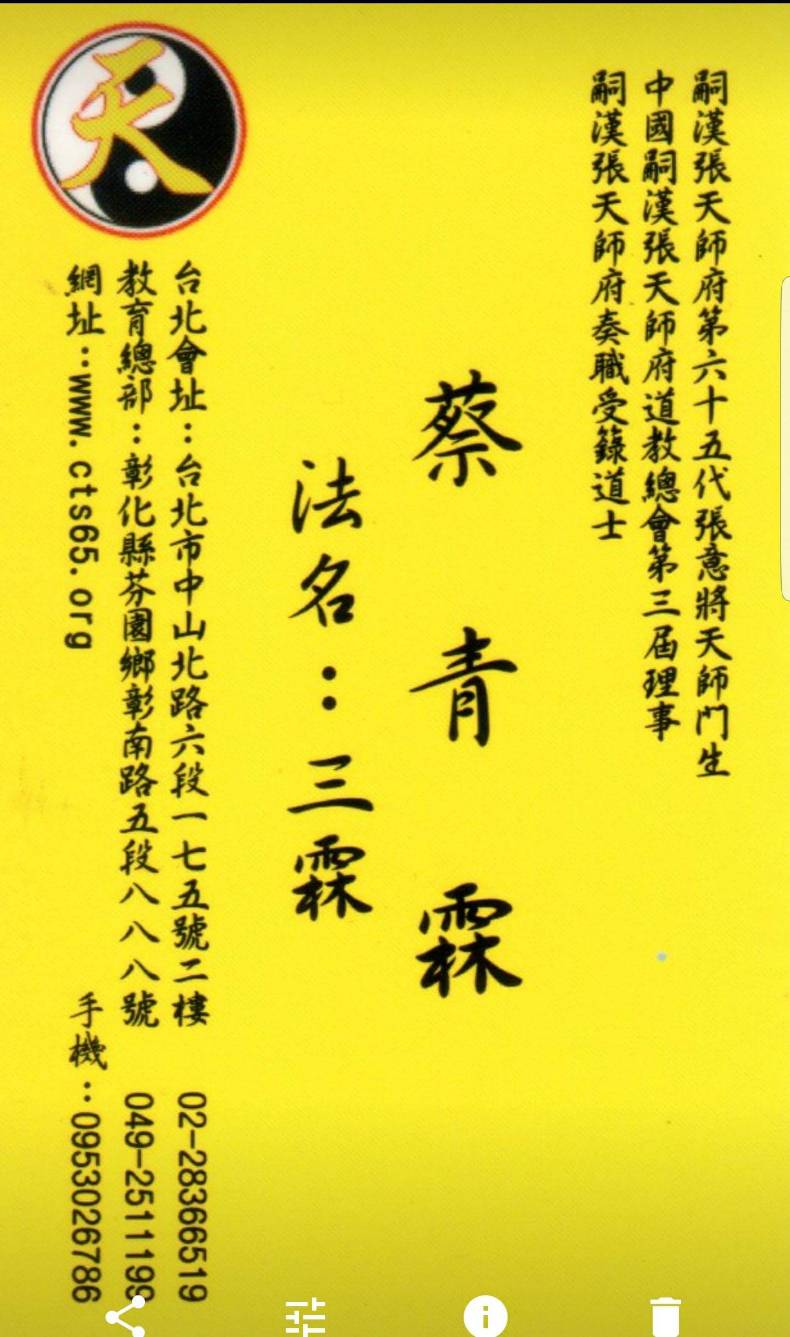 嗣漢張天師府第六十五代張意將天師門生
中國嗣漢張天師府道教總會第三屆理事
嗣漢張天師府奏職受籙道士
蔡青霖
法名：三霖
台北會址：台北市中山北路六段一七五號二樓 02-28366519
教育總部：彰化縣芬園鄉彰南路五段八八八號 049-2511199
網址：www.cts65.org 手機：0953026786
天